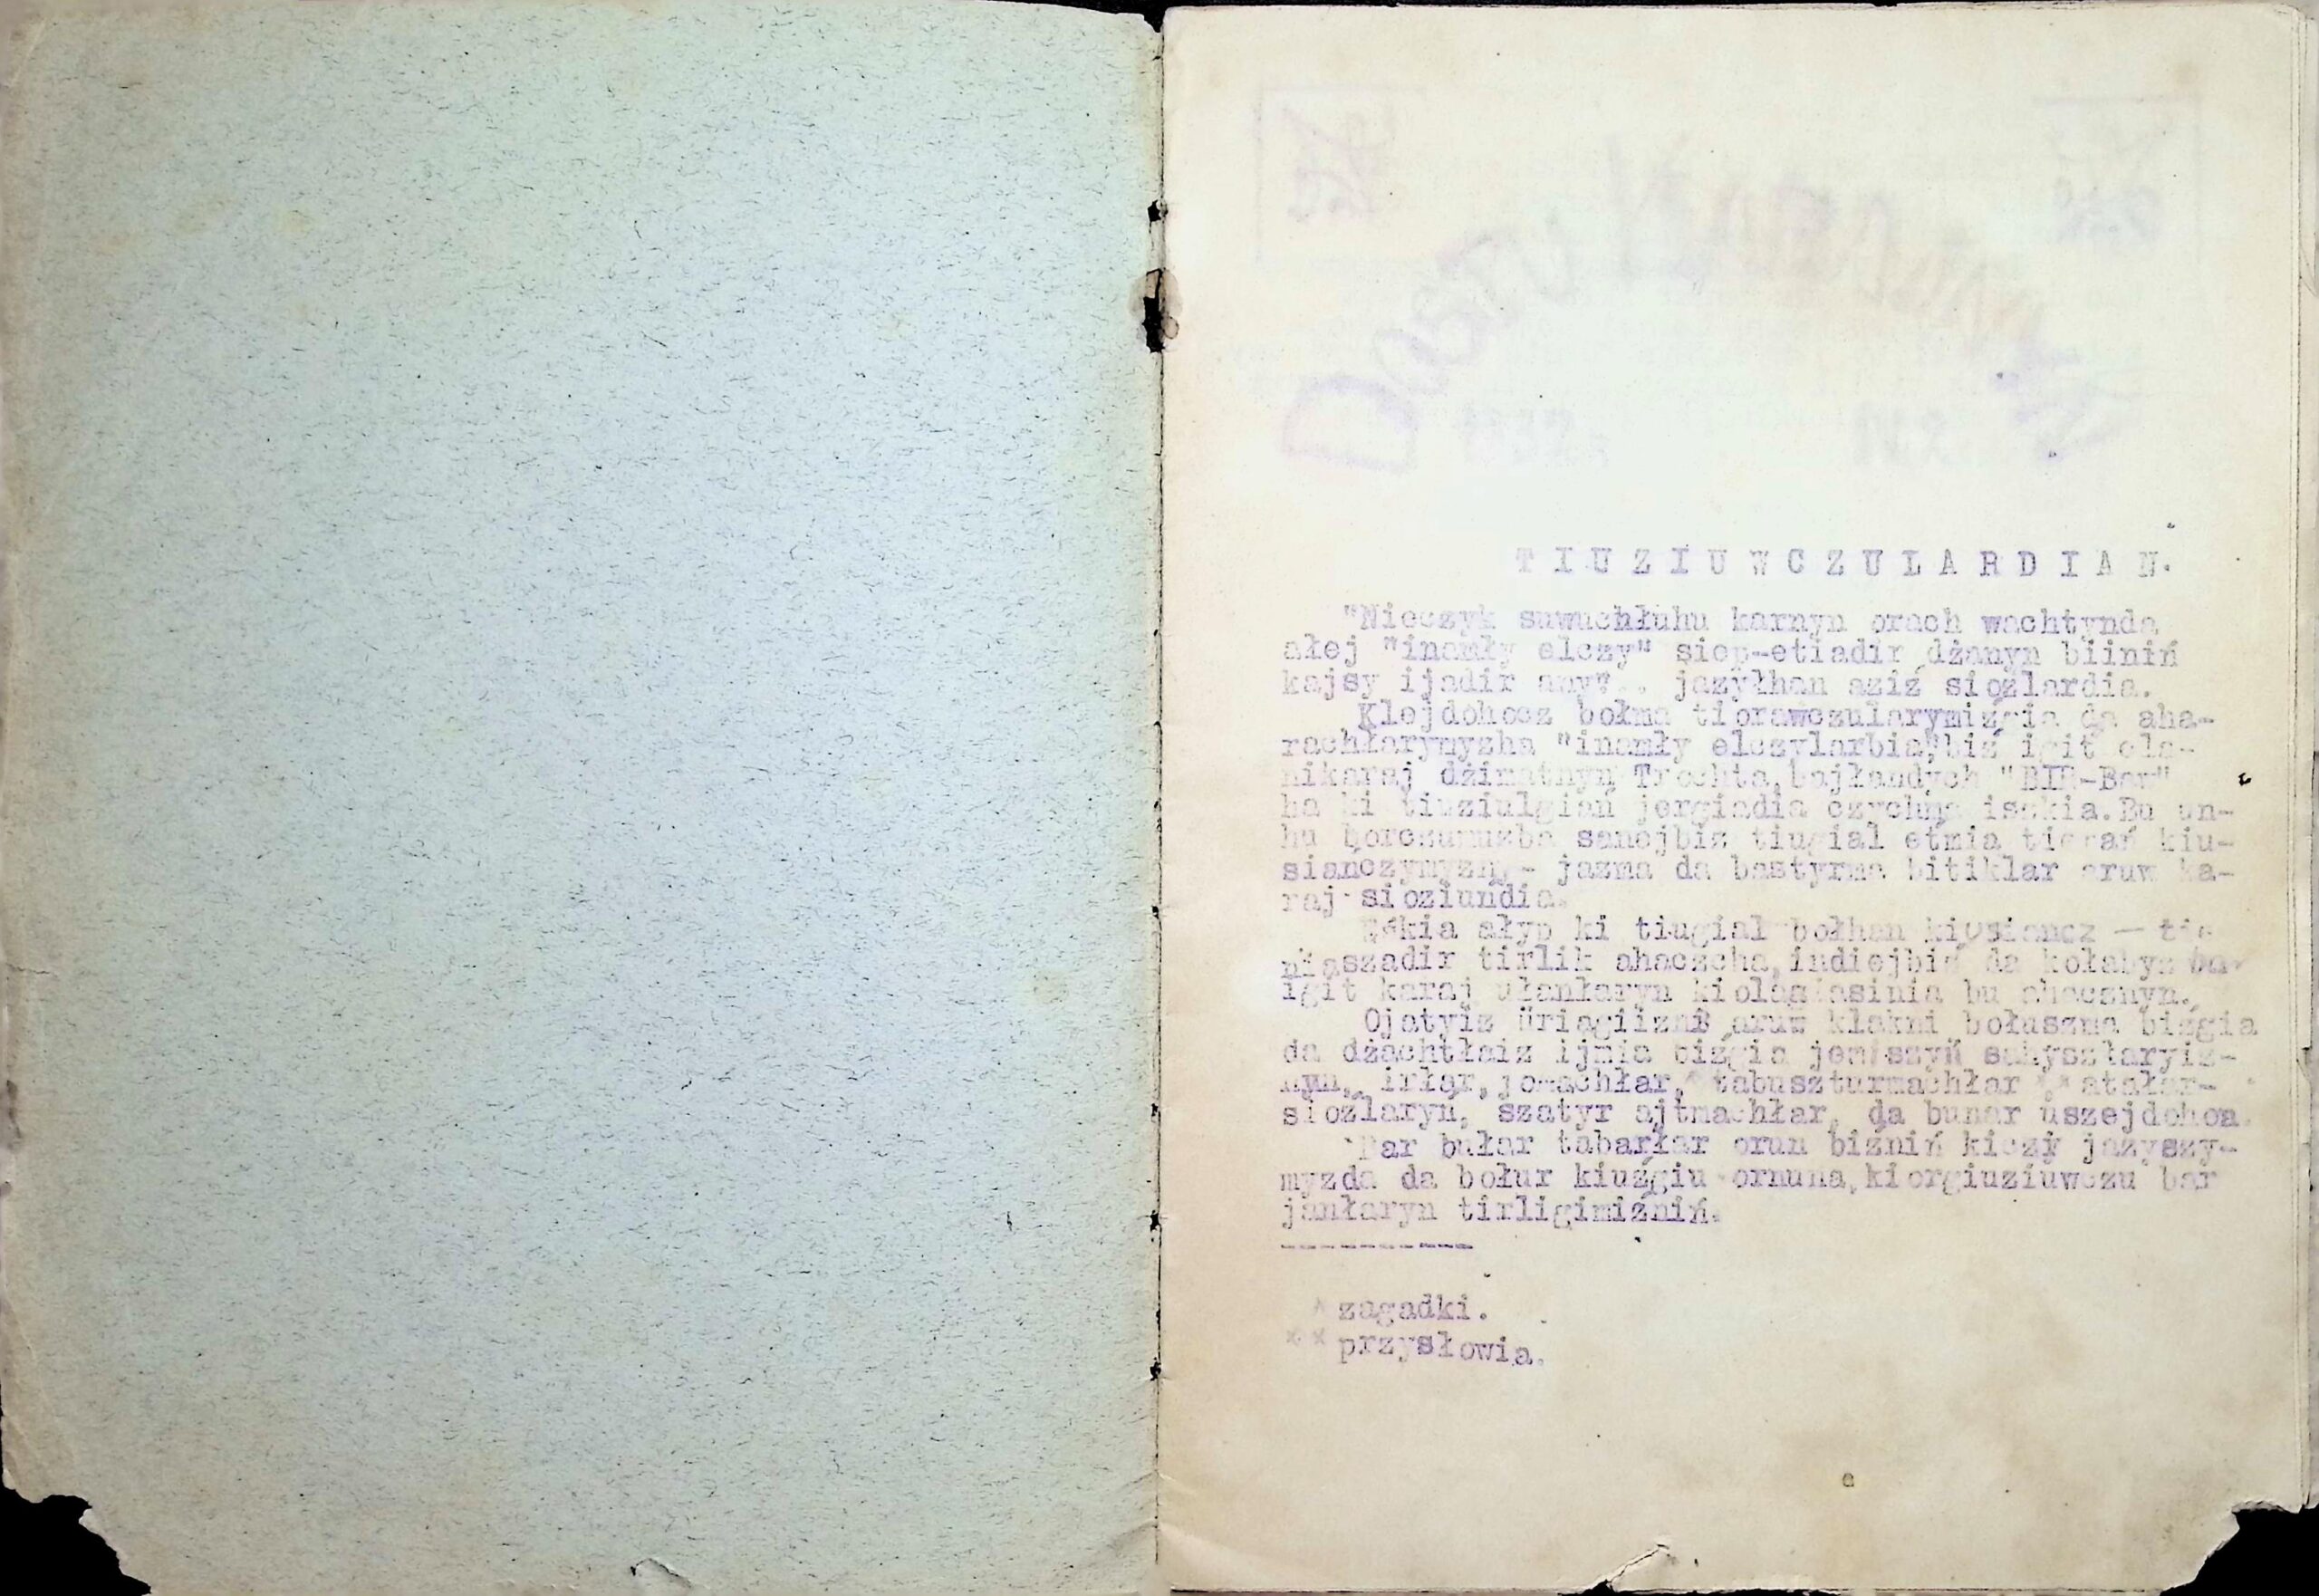 TIUZIUWCZULARDIAN.
"Nieczyk suwuchłuhu karnyn orach wachtynda
ałej "inamły elczy" siep-etiadir dżanyn biiniń
kajsy ijadir any".. jazyłhan aziź sioźlardia.
Klejdohocz bołma tiorawczularymiźgia da aha-
rachłarymyzha "inamły elczylarbia",biź igit ela-
nikaraj dżimatnyn Trochta,bajłandych "BIR-Baw"
ha ki tiuziulgiań jergiadia czychma iszkia.Bu un-
hu borczumuzba sanejbiz tiugial etmia kiu-
sianczymyzny- jazma da bastyrma bitiklar aruw ka-
raj sioziundia.
ałyp ki tiugial bołhan kiusiancz —
szadir tirlik ahaczcha,indiejbiź da kołabyz
igit karaj ułanłaryn bu ahacznyn.
Ojatyiz aruw klakni bołuszma biźgia
da dżachtłaiz ijmia biźgia jemiszyń sahyszłaryiz-
nyn, irłar,jomachłar,* tabuszturmachłar ** atałar-
sioźlaryn, szatyr ajtmachłar, da bunar uszejdohon.
Bar bułar tabarłar orun biźniń kiczy jazyszy-
myzda da bołur kiuźgiu ornuna,kiorgiuziuwczu bar
janłaryn tirligimiźniń.
----------
* zagadki.
** przysłowia.